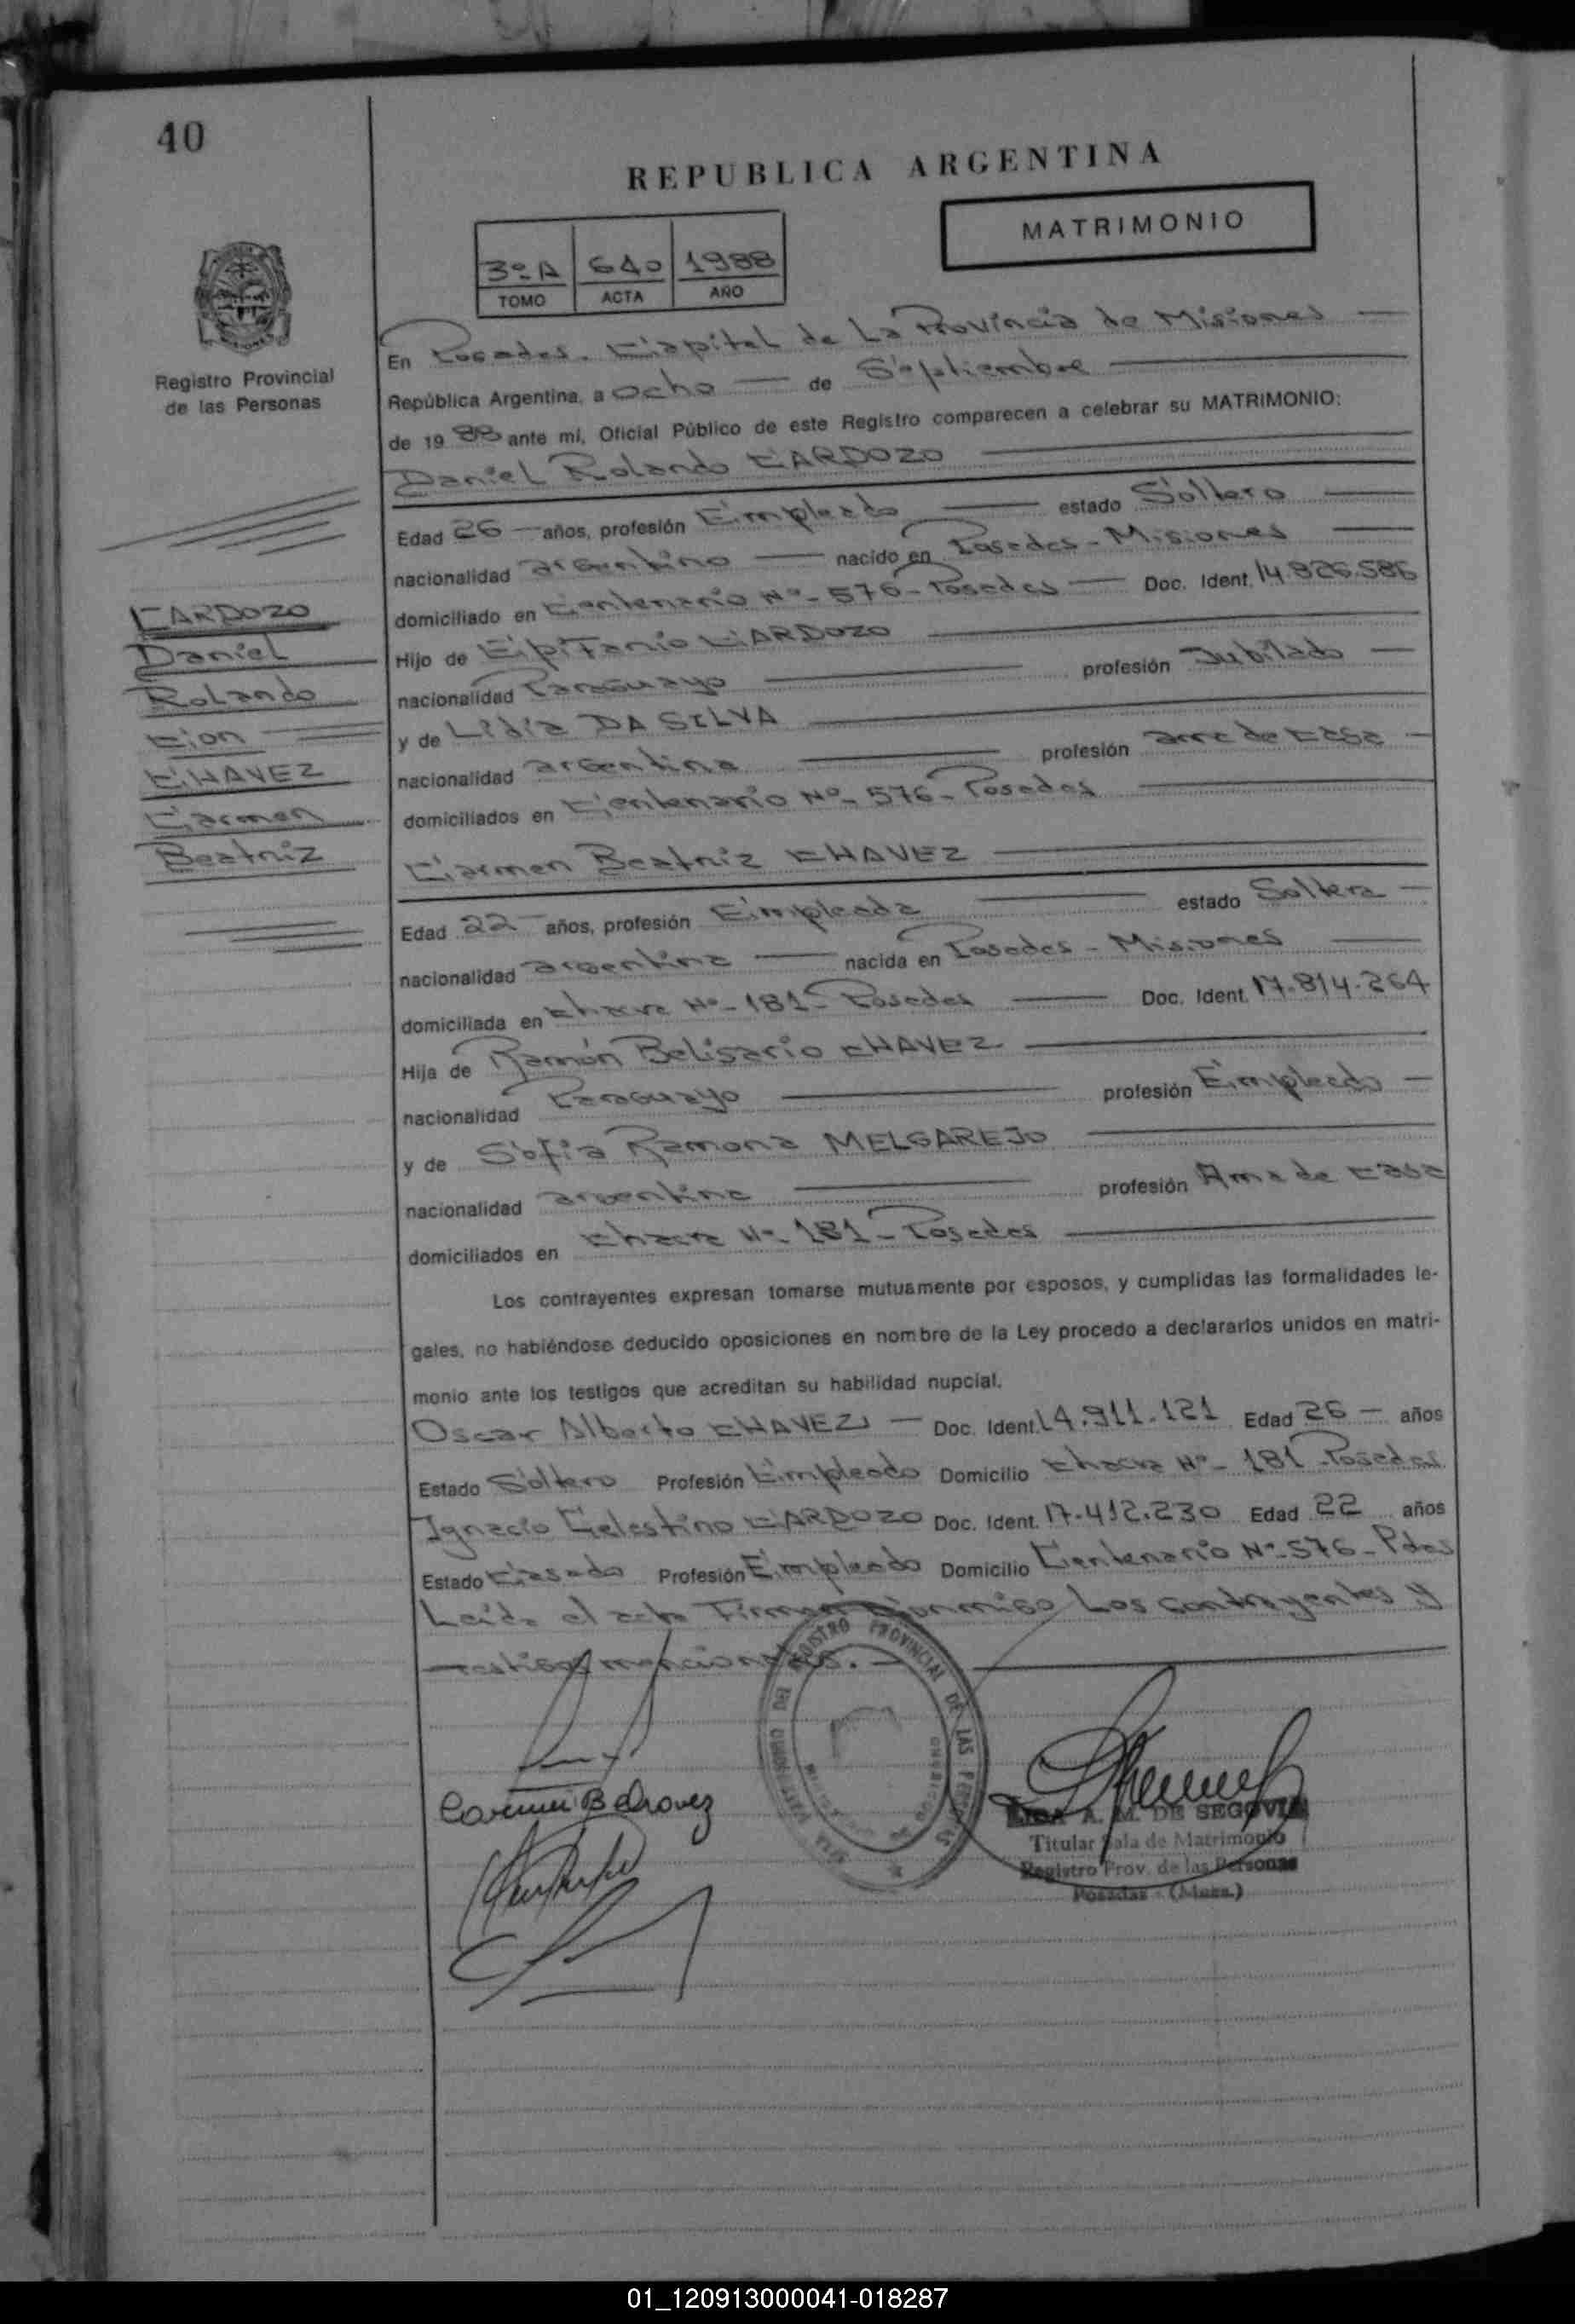 40
REPUBLICA ARGENTINA
MATRIMONIO
3º A 640 1988
TOMO ACTA AÑO
Registro Provincial
de las Personas
En Posadas. Capital de La Provincia de Misiones
República Argentina, a ocho de Septiembre
de 19 88 ante mí, Oficial Público de este Registro comparecen a celebrar su MATRIMONIO:
Daniel Rolando CARDOZO
Edad 26 años, profesión Empleado estado Soltero
nacionalidad argentino nacido en Posadas - Misiones
domiciliado en Centenario Nº- 576 - Posadas Doc. Ident. 14.826.586
Hijo de Epifanio CARDOZO
nacionalidad Paraguayo profesión Jubilado
y de Lidia DA SILVA
nacionalidad argentina profesión ama de casa
domiciliados en Centenario Nº- 576 - Posadas
CARDOZO
Daniel
Rolando
Con
CHAVEZ
Carmen
Beatriz
Carmen Beatriz CHAVEZ
Edad 22 años, profesión Empleada estado Soltera
nacionalidad argentina nacida en Posadas - Misiones
domiciliada en Chacra Nº- 181 - Posadas Doc. Ident. 17.814.264
Hija de Ramón Belisario CHAVEZ
nacionalidad Paraguayo profesión Empleado
y de Sofia Ramona MELGAREJO
nacionalidad argentina profesión Ama de casa
domiciliados en Chacra Nº- 181 - Posadas
Los contrayentes expresan tomarse mutuamente por esposos, y cumplidas las formalidades le-
gales, no habiéndose deducido oposiciones en nombre de la Ley procedo a declararlos unidos en matri-
monio ante los testigos que acreditan su habilidad nupcial.
Oscar Alberto CHAVEZ Doc. Ident. 14.911.121 Edad 26 años
Estado Soltero Profesión Empleado Domicilio Chacra Nº- 181 - Posadas
Ignacio Celestino CARDOZO Doc. Ident. 17.412.230 Edad 22 años
Estado Casado Profesión Empleado Domicilio Centenario Nº- 576 - Pdas
Leida el acta Firman Conmigo Los contrayentes y
testigos mencionados.
REGISTRO PROVINCIAL DE LAS PERSONAS
Carmen B Chavez
A. M. DE SEGOVIA
Titular Sala de Matrimonio
Registro Prov. de las Personas
Posadas - (Mnes.)
01_120913000041-018287